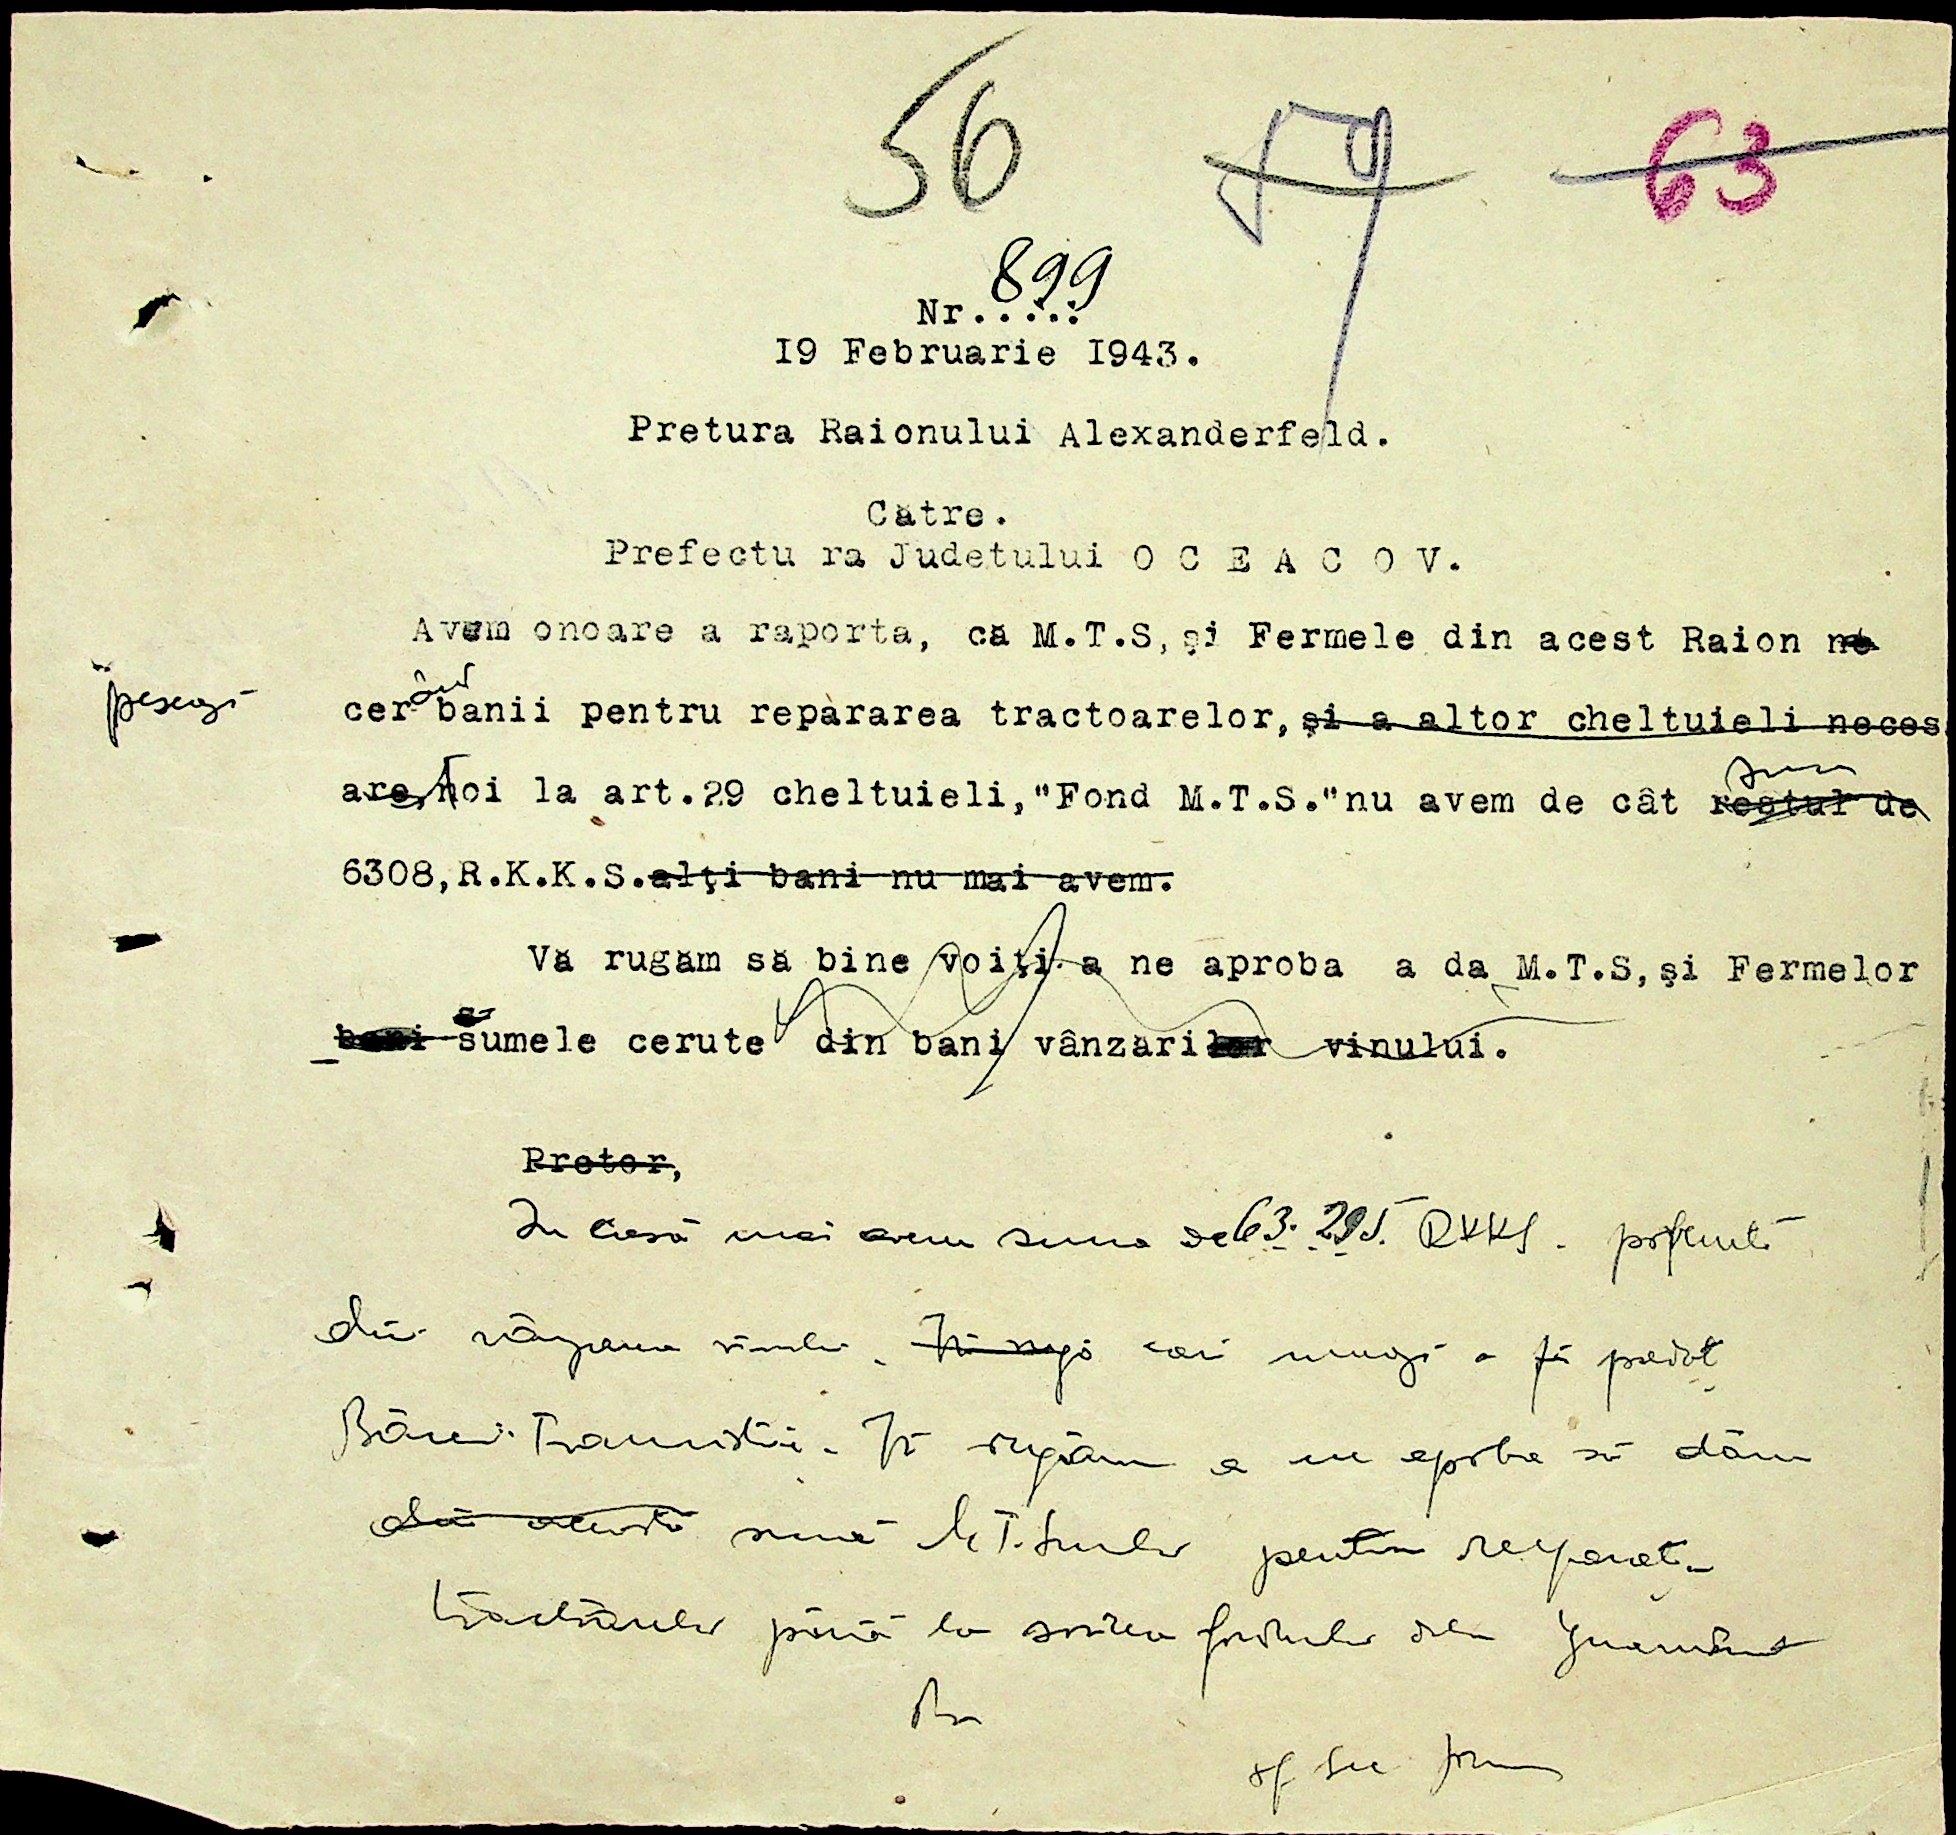 56 59 63
899
Nr.....
I9 Februarie I943.
Pretura Raionului Alexanderfeld.
Către.
Prefectu ra Judetului O C E A C O V.
Avem onoare a raporta, că M.T.S, și Fermele din acest Raion ne
cer banii pentru repararea tractoarelor, și a altor cheltuieli neces
are, Noi la art.29 cheltuieli,"Fond M.T.S."nu avem de cât restul de
suma
6308,R.K.K.S.alți bani nu mai avem.
Vă rugăm să bine voiți a ne aproba a da M.T.S, și Fermelor
bani sumele cerute din bani vânzărilor vinului.
Pretor,
In casă mai avem suma de 63.295. RKKS.
din vânzarea vinului. Vă rugă a fi
Băncei Transnistriei. Vă rugăm a ne aproba să dăm
din această sumă M.T.S.ului pentru
tractoarelor până la sosirea fondului